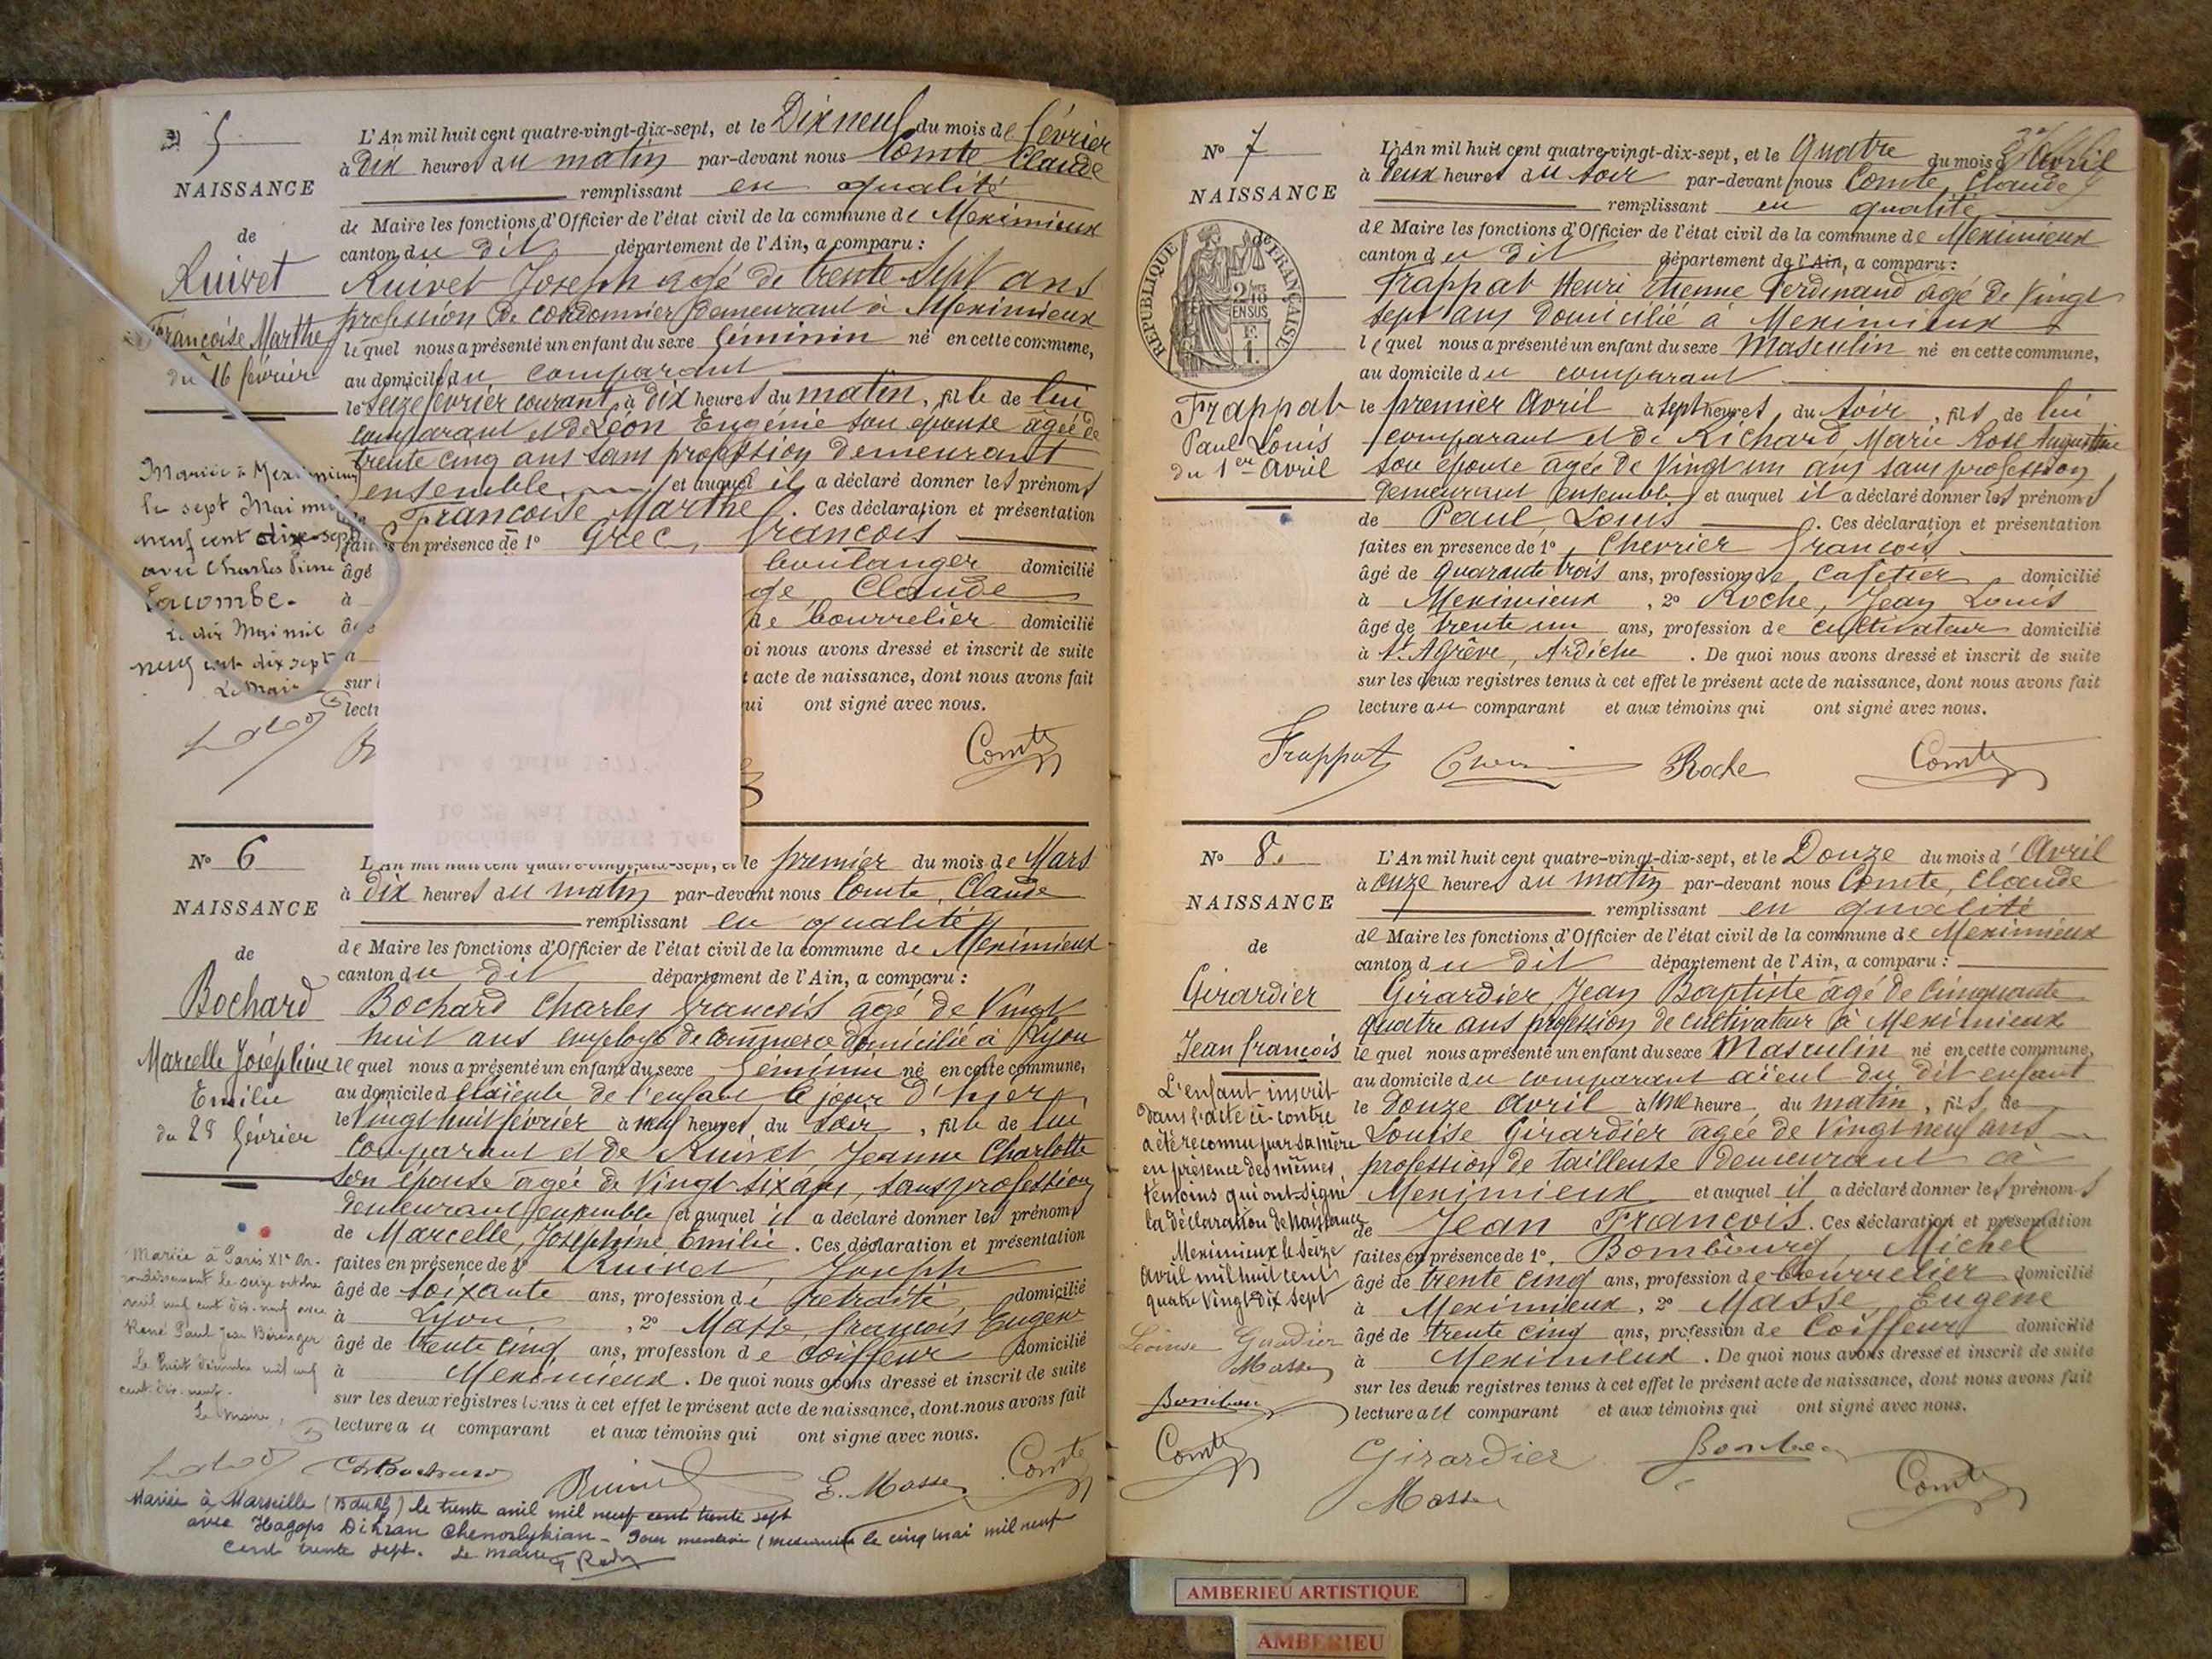 5
NAISSANCE
de
Ruivet
Françoise Marthe
du 16 février
Mariée à Meximieux
le sept Mai mil
neuf cent dix-sept
avec Charles Pierre
Lacombe.
Le dix Mai mil
neuf cent dix sept
Le Maire
L'An mil huit cent quatre-vingt-dix-sept, et le Dix neuf du mois de février
à Dix heures du matin par-devant nous Comte Claude
remplissant en qualité
de Maire les fonctions d'Officier de l'état civil de la commune de Meximieux
canton du dit département de l'Ain, a comparu :
Ruivet Joseph agé de trente sept ans
profession de cordonnier demeurant à Meximieux
lequel nous a présenté un enfant du sexe féminin né en cette commune,
au domicile du comparant
le Seize février courant, à Dix heures du matin, fille de lui
comparant et de Léon Eugénie son épouse âgée de
trente cinq ans sans profession demeurant
ensemble et auquel il a déclaré donner les prénoms
Françoise Marthe. Ces déclaration et présentation
faites en présence de 1° Grec, françois
âgé boulanger domicilié
à ge Claude
de bourrelier domicilié
oi nous avons dressé et inscrit de suite
sur acte de naissance, dont nous avons fait
lectu ui ont signé avec nous.
Comte
Le 4 Juin 1977
Le 29 Mai 1977
Décédée à PARIS 14e
N° 6
NAISSANCE
de
Bochard
Marcelle Joséphine
Emilie
du 28 février
Mariée à Paris XIe Ar-
rondissement le seize octobre
mil neuf cent dix-neuf avec
René Paul Jean Bérenger
Le huit décembre mil neuf
cent dix-neuf.
Le Maire,
L'An mil huit cent quatre-vingt-dix-sept, et le premier du mois de Mars
à Dix heures du matin par-devant nous Comte, Claude
remplissant en qualité
de Maire les fonctions d'Officier de l'état civil de la commune de Meximieux
canton du dit département de l'Ain, a comparu :
Bochard Charles françois âgé de Vingt
huit ans employé de commerce domicilié à Lyon
lequel nous a présenté un enfant du sexe féminin né en cette commune,
au domicile d l'aïeule de l'enfant le jour d'hier
le Vingt huit février à neuf heures du soir, fille de lui
comparant et de Ruivet, Jeanne Charlotte
son épouse âgée de Vingt six ans, sans profession
demeurant ensemble et auquel il a déclaré donner les prénoms
de Marcelle, Joséphine Emilie. Ces déclaration et présentation
faites en présence de 1° Ruivet, Joseph
âgé de soixante ans, profession de retraité, domicilié
à Lyon, 2° Masse, françois Eugène
âgé de trente cinq ans, profession de coiffeur domicilié
à Meximieux. De quoi nous avons dressé et inscrit de suite
sur les deux registres tenus à cet effet le présent acte de naissance, dont nous avons fait
lecture au comparant et aux témoins qui ont signé avec nous.
Ch Bochard Ruivet E. Masse Comte
Mariée à Marseille (B du Rh) le trente avril mil neuf cent trente sept
avec Hagops Dikran Chenorlykian - Pour mention (Meximieux) le cinq mai mil neuf
cent trente sept. Le Maire
N° 7
NAISSANCE
de
RÉPUBLIQUE FRANÇAISE
2/10 EN SUS
F. 1.
Frappat
Paul Louis
du 1er Avril
L'An mil huit cent quatre-vingt-dix-sept, et le Quatre du mois d'Avril
à Deux heures du soir par-devant nous Comte, Claude
remplissant en qualité
de Maire les fonctions d'Officier de l'état civil de la commune de Meximieux
canton du dit département de l'Ain, a comparu :
Frappat Henri Etienne Ferdinand agé de Vingt
sept ans domicilié à Meximieux
lequel nous a présenté un enfant du sexe Masculin né en cette commune,
au domicile du comparant
le premier Avril à sept heures, du soir, fils de lui
comparant et de Richard Marie Rose Augustine
son épouse âgée de Vingt un ans sans profession
demeurant ensemble et auquel il a déclaré donner les prénoms
de Paul, Louis. Ces déclaration et présentation
faites en présence de 1°, Chevrier françois
âgé de quarante trois ans, profession de cafetier domicilié
à Meximieux, 2° Roche, Jean Louis
âgé de trente un ans, profession de cultivateur domicilié
à St Agrève, Ardèche. De quoi nous avons dressé et inscrit de suite
sur les deux registres tenus à cet effet le présent acte de naissance, dont nous avons fait
lecture au comparant et aux témoins qui ont signé avec nous.
Frappat Roche Comte
N° 8.
NAISSANCE
de
Girardier
Jean françois
L'enfant inscrit
dans l'acte ci-contre
a été reconnu par sa mère
en présence des mêmes
témoins qui ont signé
la déclaration de naissance
Meximieux le seize
avril mil huit cent
quatre vingt dix sept
Louise Girardier
Masse
Comte
L'An mil huit cent quatre-vingt-dix-sept, et le Douze du mois d'Avril
à onze heures du matin par-devant nous Comte, Claude
remplissant en qualité
de Maire les fonctions d'Officier de l'état civil de la commune de Meximieux
canton du dit département de l'Ain, a comparu :
Girardier, Jean Baptiste âgé de Cinquante
quatre ans profession de cultivateur à Meximieux
lequel nous a présenté un enfant du sexe Masculin né en cette commune,
au domicile du comparant aïeul du dit enfant
le Douze Avril à une heure du matin, fils de
Louise Girardier âgée de Vingt neuf ans
profession de tailleuse demeurant à
Meximieux et auquel il a déclaré donner les prénoms
de Jean François. Ces déclaration et présentation
faites en présence de 1°, Bombourg, Michel
âgé de trente cinq ans, profession de bourrelier domicilié
à Meximieux, 2° Masse, Eugène
âgé de trente cinq ans, profession de Coiffeur domicilié
à Meximieux. De quoi nous avons dressé et inscrit de suite
sur les deux registres tenus à cet effet le présent acte de naissance, dont nous avons fait
lecture au comparant et aux témoins qui ont signé avec nous.
Girardier Comte
Masse
AMBERIEU ARTISTIQUE
AMBERIEU